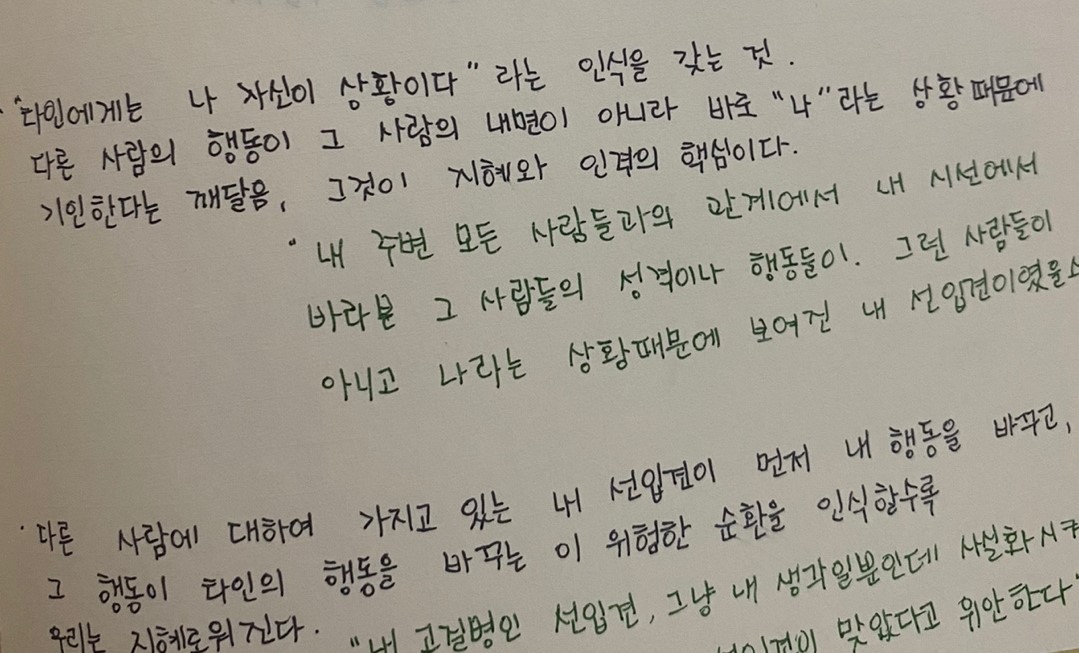 · "타인에게는 나 자신이 상황이다" 라는 인식을 갖는 것.
다른 사람의 행동이 그 사람의 내면이 아니라 바로 "나"라는 상황 때문에
기인한다는 깨달음, 그것이 지혜와 인격의 핵심이다.
" 내 주변 모든 사람들과의 관계에서 내 시선에서
바라본 그 사람들의 성격이나 행동들이. 그런 사람들이
아니고 나라는 상황때문에 보여진 내 선입견이였을
· 다른 사람에 대하여 가지고 있는 내 선입견이 먼저 내 행동을 바꾸고,
그 행동이 타인의 행동을 바꾸는 이 위험한 순환을 인식할수록
우리는 지혜로워진다.
"내 고질병인 선입견, 그냥 내 생각일뿐인데 사실화시
맞았다고 위안한다"